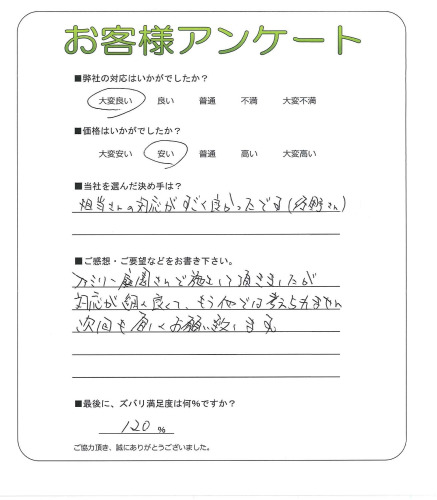 お客様アンケート
■弊社の対応はいかがでしたか？
大変良い 良い 普通 不満 大変不満
■価格はいかがでしたか？
大変安い 安い 普通 高い 大変高い
■当社を選んだ決め手は？
担当さんの対応がすごく良かったです(さん)
■ご感想・ご要望などをお書き下さい。
ファミリー庭園さんで施工して頂きましたが
対応が良くて、もう他では考えられません
次回も宜しくお願い致します
■最後に、ズバリ満足度は何％ですか？
120 %
ご協力頂き、誠にありがとうございました。